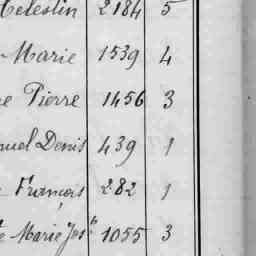 Celestin 2184 5
Marie 1539 4
Pierre 1456 3
Denis 439 1
François 282 1
Marie Jos^h 1055 3